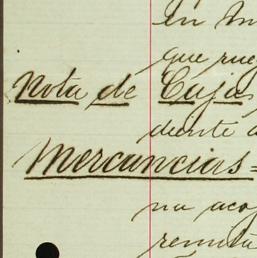 en m
que rue
Nota de Cajas
diente a
Mercancias =
na aco
remita